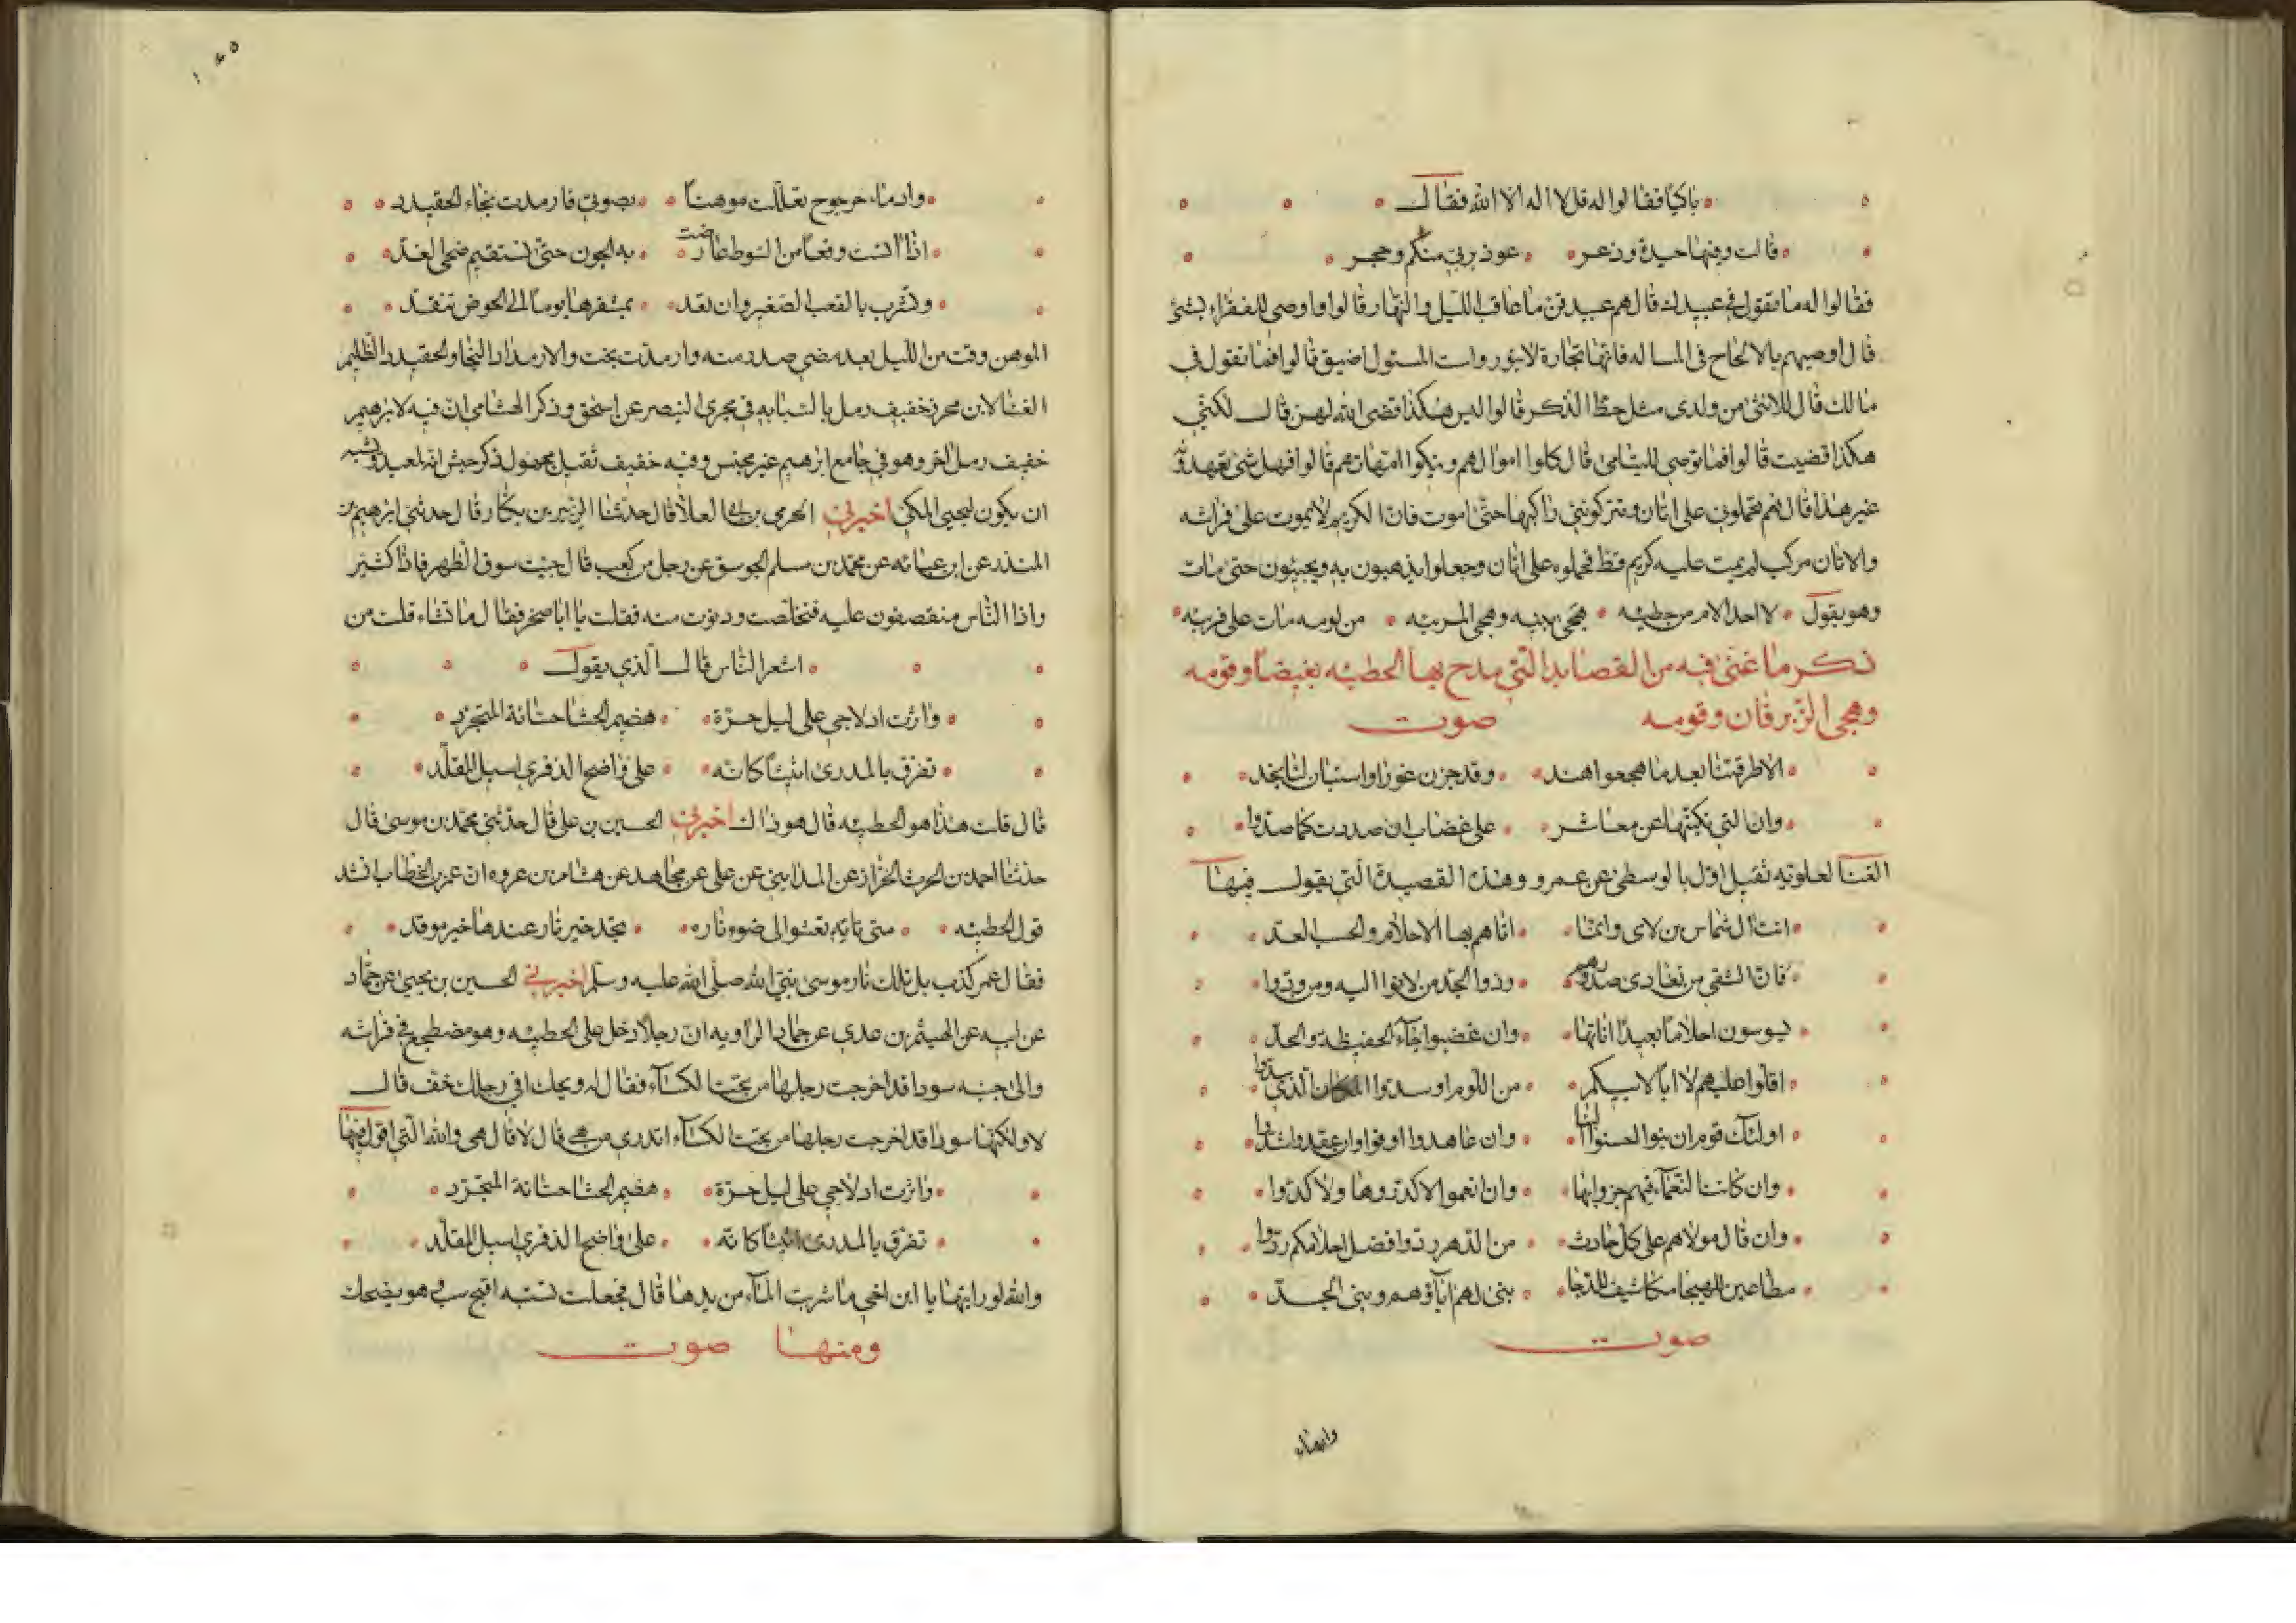 باكيا فقالوا له قل لا اله الا الله فقال
قالت وفيها حيدة وذعر عوذ بربي منكم وحجر
فقالوا له ما تقول في عبيدك قال هم عبيد قن ما عاقب الليل والنهار قالوا فاوصى للفقراء بشئ
قال اوصيهم بالالحاح فى المساله فانها تجارة لا تبور واست المسئول اضيق قالوا فما تقول فى
مالك قال للانثى من ولدى مثل حظ الذكر قالوا ليس هكذا قضى الله لهن قال لكنى
هكذا قضيت قالوا فما توصى لليتامى قال كلوا اموالهم ونيكوا امهاتهم قالوا فهل شئ تعهد فيه
غير هذا قال نعم تحملونى على اتان وتتركوننى راكبها حتى اموت فان الكريم لا يموت على فراشه
والاتان مركب لم يمت عليه كريم قط فحملوه على اتان وجعلوا يذهبون به ويجيئون حتى مات
وهو يقول لا احد الام من حطيئه هجى بنيه وهجى المريه من لومه مات على فريه
ذكر ما غنى فيه من القصايد التى مدح بها الحطيئه بغيضا وقومه
وهجى الزبرقان وقومه صوت
الا طرقتنا بعد ما هجعوا هند وقد جزن غورا واستبان لنا نجد
وان التى نكبتها عن معاشر على غضاب ان صددت كما صدوا
الغنا لعلويه ثقيل اول بالوسطى عن عمرو وهذه القصيدة التى يقول فيها
اتت ال شماس بن لاى وانما اتاهم بها الاحلام والحسب العد
فان الشقى من تعادى صدورهم وذوا الجد من لانوا اليه ومن ودوا
يسوسون احلاما بعيدا اناتها وان غضبوا جاء الحفيظة والحد
اقلوا عليهم لا ابا لابيكم من اللوم او سدوا المكان الذى سدوا
اولئك قوم ان بنوا احسنوا البنا وان عاهدوا اوفوا وان عقدوا شدوا
وان كانت النعماء فيهم جزوا بها وان انعموا لا كدروها ولا كدوا
وان قال مولاهم على كل حادث من الدهر ردوا فضل احلامكم ردوا
مطاعين للهيجا مكاشيف للدجا بنى لهم اباؤهم وبنى الجد
صوت
وادماء
وادماء حرجوج تعاللت موهنا بصوتي فارمدت نجاء الخفيدد
اذا انست وقعا من السوط عارضت به الجون حتى تستقيم ضحى الغد
وتشرب بالقعب الصغير وان تقد بمشفرها يوما الى الحوض تنقد
الموهن وقت من الليل بعد مضى صدر منه وارمدت نجت والارمداد النجا والخفيدد الظليم
الغنا لابن محرز خفيف رمل بالسبابه فى مجرى البنصر عن اسحق وذكر الهشامى ان فيه لابرهيم
خفيف رمل اخر وهو فى جامع ابرهيم غير مجنس وفيه خفيف ثقيل مجهول ذكر حبش انه لمعبد ويشبه
ان يكون ليحيى المكى اخبرني الحرمى بن ابى العلا قال حدثنا الزبير بن بكار قال حدثنى ابرهيم بن
المنذر عن ابن عبايه عن محمد بن مسلم الجوسق عن رجل من كعب قال جيت سوق الظهر فاذا كثير
واذا الناس منقصفون عليه فتخلصت ودنوت منه فقلت يا ابا صخر فقال ما تشاء قلت من
اشعر الناس قال الذي يقول
واثرت ادلاجي على ليل حرة هضيم الحشا حسانة المتجرد
تفرق بالمدرى اثيثا كانه على واضح الذفرى اسيل المقلد
قال قلت هذا هو الحطيئه قال هو ذاك اخبرني الحسين بن على قال حدثنى محمد بن موسى قال
حدثنا احمد بن الحرث الخراز عن المداينى عن على عن مجاهد عن هشام بن عروه ان عمر بن الخطاب انشد
قول الحطيئه متى تاته تعشوا الى ضوء ناره تجد خير نار عندها خير موقد
فقال عمر كذب بل تلك نار موسى نبى الله صلى الله عليه وسلم اخبرني الحسين بن يحيى عن حماد
عن ابيه عن الهيثم بن عدي عن حماد الراويه ان رجلا دخل على الحطيئه وهو مضطجع فى فراشه
والى جنبه سودا قد اخرجت رجلها من تحت الكساء فقال له ويحك افى رجلك خف قال
لا ولكنها سودا قد اخرجت رجلها من تحت الكساء اتدرى من هى قال لا قال هى والله التى اقول فيها
واثرت ادلاجي على ليل حرة هضيم الحشا حسانة المتجرد
تفرق بالمدرى اثيثا كانه على واضح الذفرى اسيل المقلد
والله لو رايتها يا ابن اخى ما شربت الماء من يدها قال فجعلت تسبه اقبح سب وهو يضحك
ومنها صوت